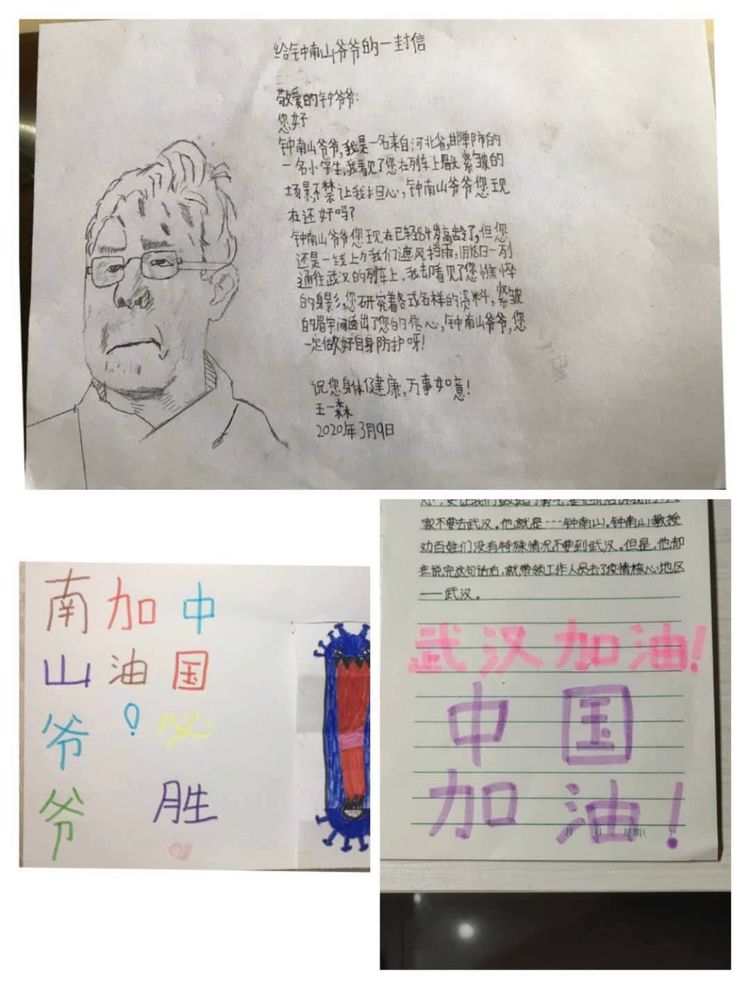 给钟南山爷爷的一封信
敬爱的钟爷爷:
您好
钟南山爷爷,我是一名来自河北省,邯郸市的
一名小学生,我看见了您在列车上眉头紧皱的
场景不禁让我担心,钟南山爷爷您现
在还好吗?
钟南山爷爷您现在已经84岁高龄了,但您
还是一线上为我们遮风挡雨,一列
通往武汉的列车上,我却看见了您憔悴
的身影,您研究着各式各样的资料,紧皱
的眉宇间画出了您的信心,钟南山爷爷,您
一定做好自身防护呀!
祝您身体健康,万事如意!
王一森
2020年3月9日
南山爷爷
加油!
中国必胜
家不要去武汉。他就是…钟南山。钟南山教授
劝百姓们没有特殊情况不要到武汉。但是,他却
在说完这句话后,就带领工作人员去了疫情核心地区
——武汉。
武汉加油!
中国
加油!
月 日 星期(